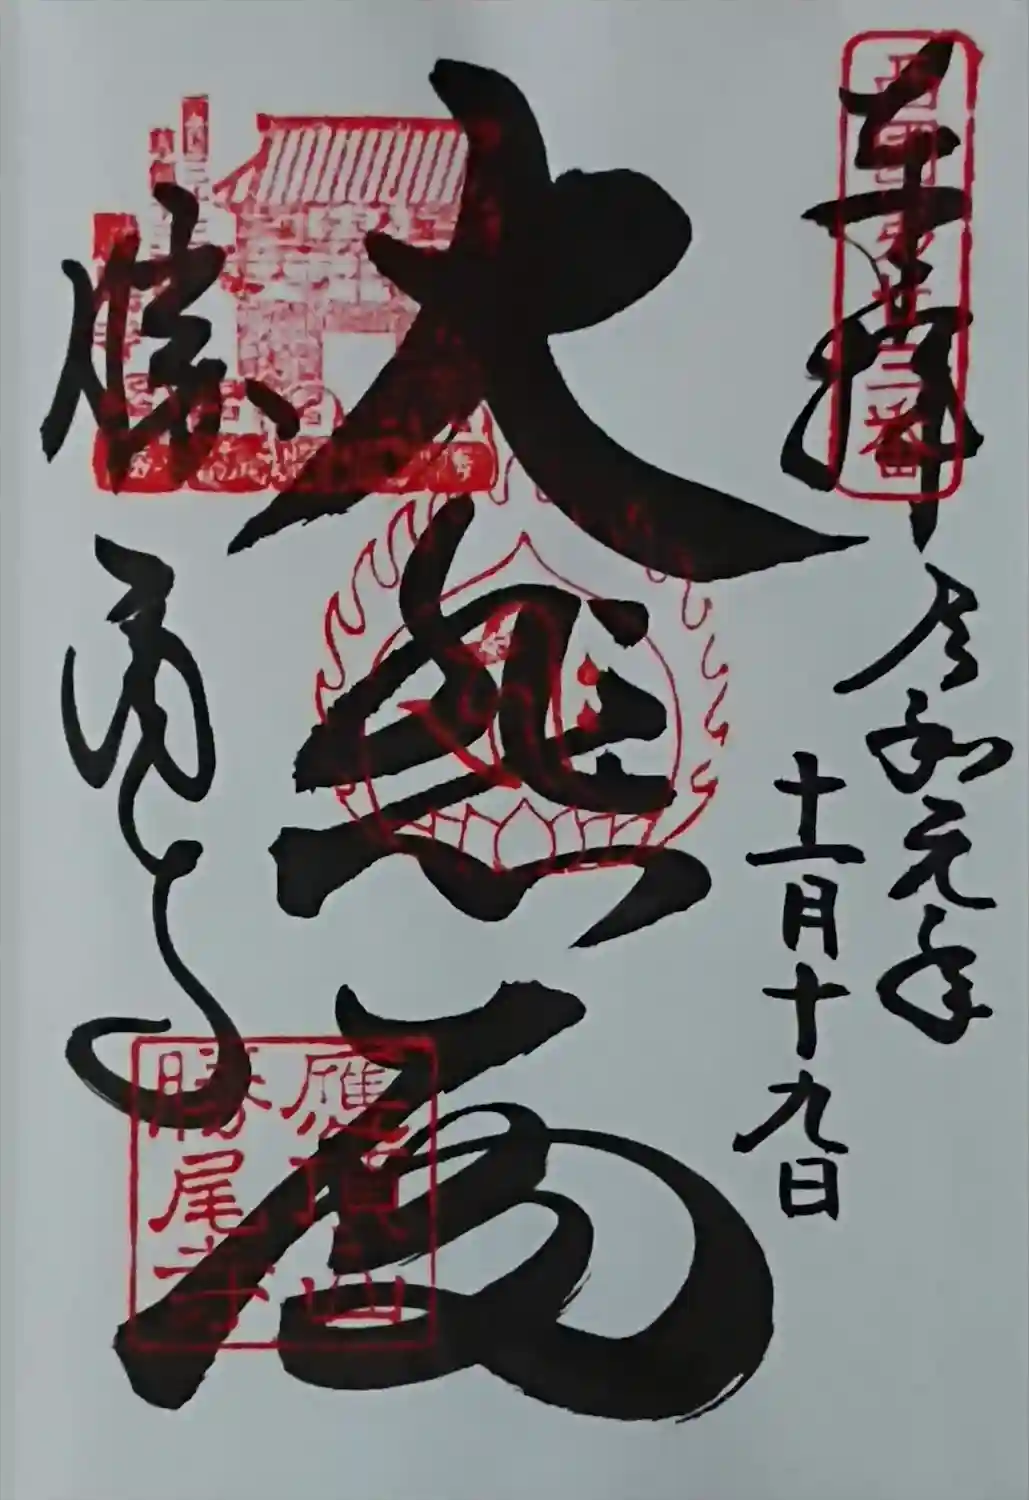 奉拝
西国第廿三番
令和元年
十一月十九日
大悲殿
勝尾寺
應頂山
勝尾寺